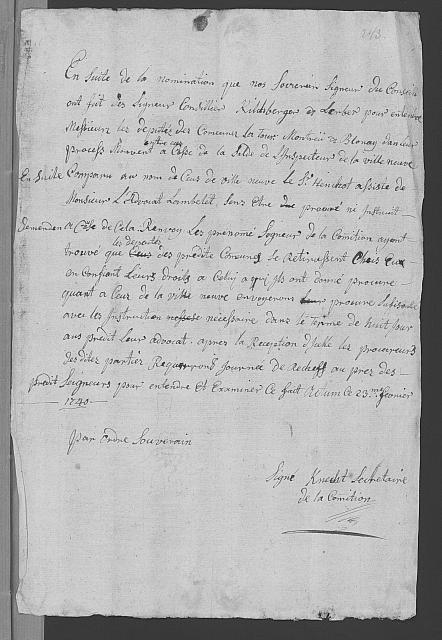 En Suite de la nomination que nos Soeverain Signeur du Conseils
ont fait des Signeur Consillier Kilchberger et Lerber pour entendre
Messieurs les deputéz des Comunes La tour Montreu de Blonay dans leur
process Mouvent entre eux a Cose de la Solde de l'Inspecteur de la ville neuve
En Suite Comparu au nom de Ceux de ville neuve le Sr. Hinchot assisté de
Monsieur L'Advocat Lambelet Senz Etre procuré ni Instruit
demendan a Cose de Cela Renvoy Les prenomé Signeur de la Comition ayant
les deputés
trouvé que Ceux des predite Comunes Se Retirassent Chois Eux
en Confiant Leurs droits a Celuy a qui ils ont donné procure
quant a Ceux de la ville neuve envoyeront leur procure Sufisante
avec les Instruction nessese nécessaire dans le terme de huit jour
aus predit Leur advocat, apres la Reception d'Icelle les procureurs
desditez partiéz Requerront Journée de Rechef au prez des
predit Seigneurs pour entendre Et Examiner Ce fait Actum ce 23.me fevrier
1740
par Ordre Souverain
Signé Knecht Secretaire
de la Comition